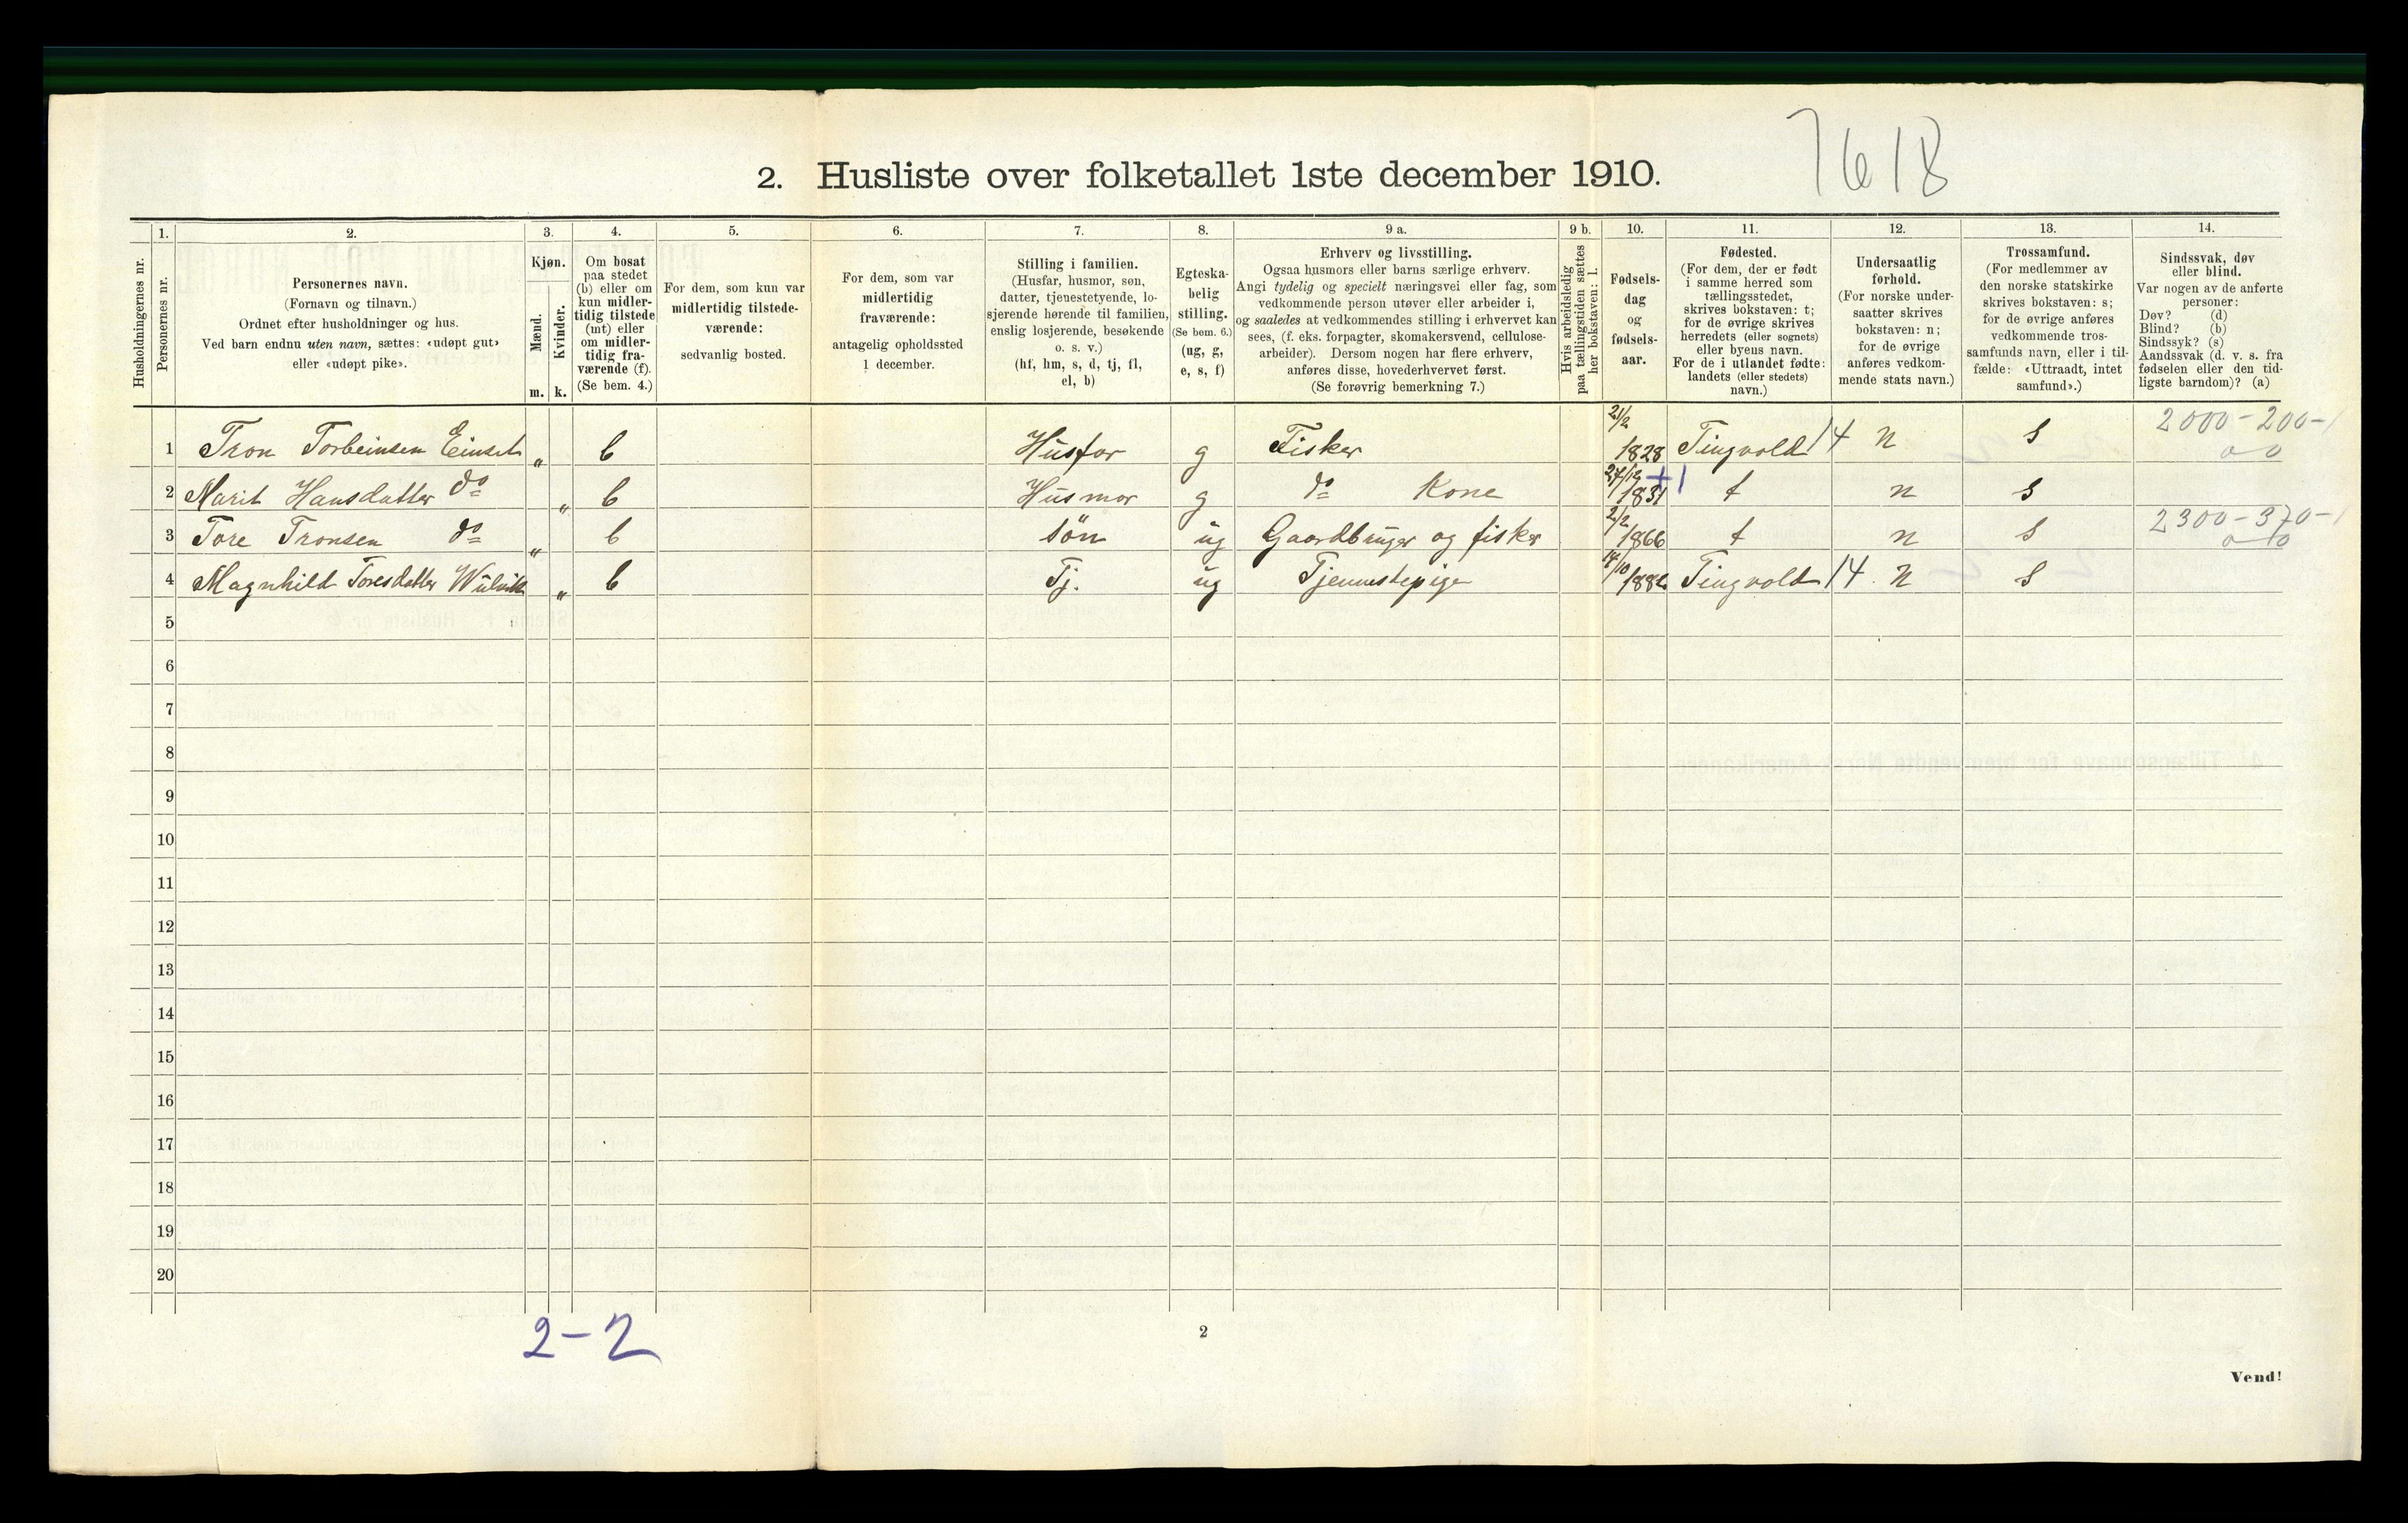 7618
2. Husliste over folketallet 1ste december 1910.
Husholdningernes nr.
1.
Personernes nr.
2.
Personernes navn.
(Fornavn og tilnavn.)
Ordnet efter husholdninger og hus.
Ved barn endnu uten navn, sættes: «udøpt gut»
eller «udøpt pike».
3.
Kjøn.
Mænd.
Kvinder.
m. k.
4.
Om bosat
paa stedet
(b) eller om
kun midler-
tidig tilstede
(mt) eller
om midler-
tidig fra-
værende (f).
(Se bem. 4.)
5.
For dem, som kun var
midlertidig tilstede-
værende:
sedvanlig bosted.
6.
For dem, som var
midlertidig
fraværende:
antagelig opholdssted
1 december.
7.
Stilling i familien.
(Husfar, husmor, søn,
datter, tjenestetyende, lo-
sjerende hørende til familien,
enslig losjerende, besøkende
o. s. v.)
(hf, hm, s, d, tj, fl,
el, b)
8.
Egteska-
belig
stilling.
(Se bem. 6.)
(ug, g,
e, s, f)
9 a.
Erhverv og livsstilling.
Ogsaa husmors eller barns særlige erhverv.
Angi tydelig og specielt næringsvei eller fag, som
vedkommende person utøver eller arbeider i,
og saaledes at vedkommendes stilling i erhvervet kan
sees, (f. eks. forpagter, skomakersvend, cellulose-
arbeider). Dersom nogen har flere erhverv,
anføres disse, hovederhvervet først.
(Se forøvrig bemerkning 7.)
9 b.
Hvis arbeidsledig
paa tællingstiden sættes
her bokstaven: l.
10.
Fødsels-
dag
og
fødsels-
aar.
11.
Fødested.
(For dem, der er født
i samme herred som
tællingsstedet,
skrives bokstaven: t;
for de øvrige skrives
herredets (eller sognets)
eller byens navn.
For de i utlandet fødte:
landets (eller stedets)
navn.)
12.
Undersaatlig
forhold.
(For norske under-
saatter skrives
bokstaven: n;
for de øvrige
anføres vedkom-
mende stats navn.)
13.
Trossamfund.
(For medlemmer av
den norske statskirke
skrives bokstaven: s;
for de øvrige anføres
vedkommende tros-
samfunds navn, eller i til-
fælde: «Uttraadt, intet
samfund».)
14.
Sindssvak, døv
eller blind.
Var nogen av de anførte
personer:
Døv? (d)
Blind? (b)
Sindssyk? (s)
Aandssvak (d. v. s. fra
fødselen eller den tid-
ligste barndom)? (a)
1 Tron Torbeinsen Einset „ b Husfar g Fisker 21/2 1828 Tingvold 14 n s 2000-200-1 0 0
2 Marit Hansdatter do „ b Husmor g do Kone 27/12 1831 +1 t n s
3 Tore Tronsen do „ b søn ug Gaardbruger og fisker 2/2 1866 t n s 2300-370-1 0-10
4 Magnhild Toresdatter „ b Tj. ug Tjennestepige 14/10 1882 Tingvold 14 n s
5
6
7
8
9
10
11
12
13
14
15
16
17
18
19
20
2-2
2
Vend!